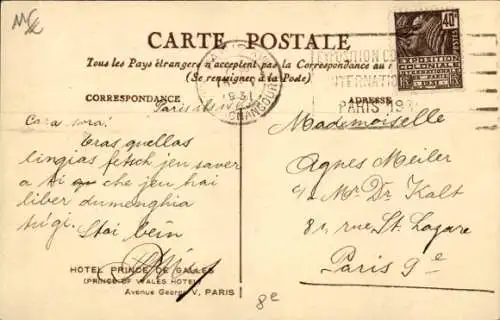 CARTE POSTALE
Tous les Pays étrangers n'acceptent pas la Correspondance au
(Se renseigner à la Poste)
CORRESPONDANCE
ADRESSE
40c
EXPOSITION
COLONIALE
INTERNATIONALE
PARIS 1931
EXPOSITION CO
INTERNATION
PARIS 193
1931
Paris
Cara sora!
Tras quellas
lingias fetsch jeu saver
a ti che jeu hai
liber dumengia
Stai bein
Mademoiselle
Agnes Meiler
c/o Mr. Dr. Kalt
81, rue St. Lazare
Paris 9e
HOTEL PRINCE DE GALLES
(PRINCE OF WALES HOTEL)
Avenue George V, PARIS
8e